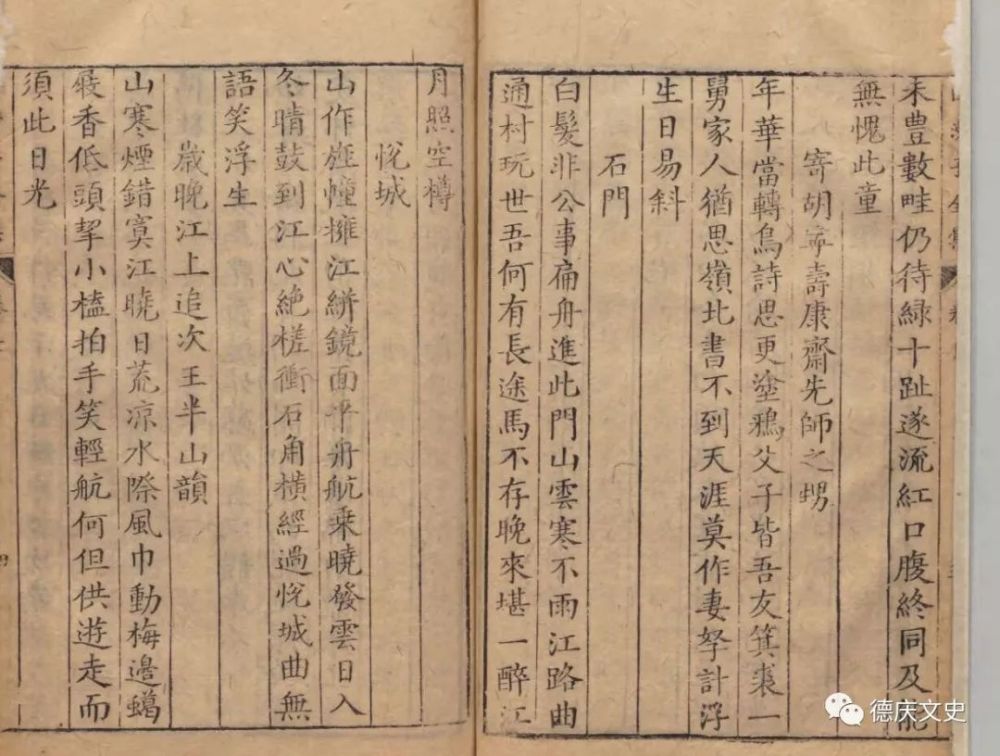 未豊數畦仍待緑十趾遂流紅口腹終同及能
無愧此童
寄胡寧壽康齋先師之甥
年華當轉烏詩思更塗鴉父子皆吾友箕裘一
舅家人猶思嶺北書不到天涯莫作妻孥計浮
生日易斜
石門
白髮非公事扁舟進此門山雲寒不雨江路曲
通村玩世吾何有長途馬不存晚來堪一醉江
月照空樽
悅城
山作旌幢擁江絣鏡面平舟航乗曉發雲日入
冬晴鼓到江心絶槎衝石角横經過悅城曲無
語笑浮生
歳晚江上追次王半山韻
山寒煙錯寞江曉日荒凉水際風巾動梅邊蠟
屐香低頭挈小榼拍手笑輕航何但供遊走而
須此日光
德庆文史